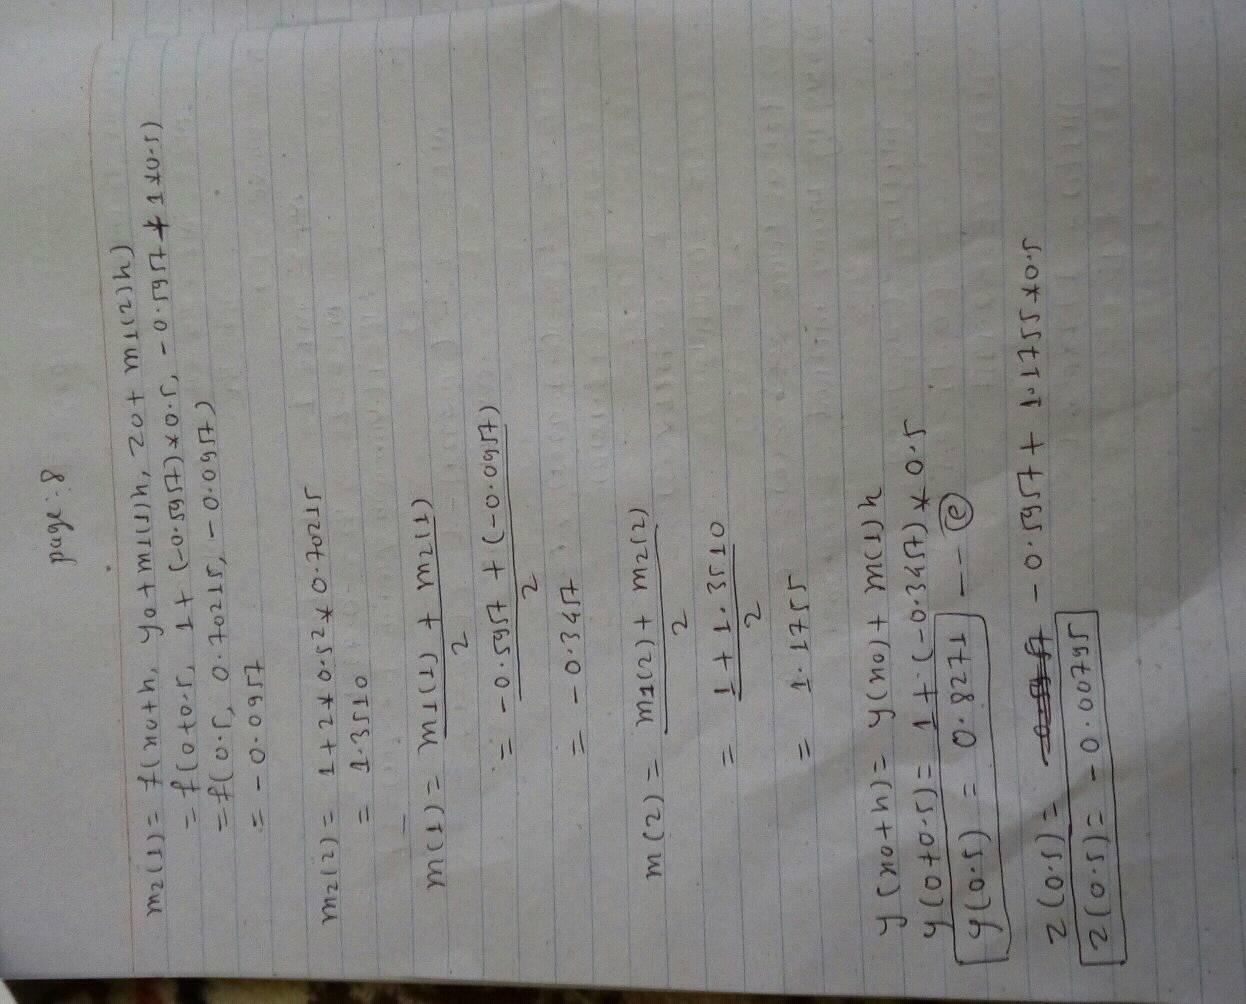 page:8
m2(1) = f(x0+h, y0+m1(1)h, z0+ m1(2)h)
= f(0+0.5, 1+ (-0.5957)*0.5, -0.5957 + 1*0.5)
= f(0.5, 0.70215, -0.0957)
= -0.0957
m2(2) = 1+2*0.5²*0.70215
= 1.3510
m(1) = m1(1) + m2(1) / 2
= -0.5957 + (-0.0957) / 2
= -0.3457
m(2) = m1(2) + m2(2) / 2
= 1+1.3510 / 2
= 1.1755
y(x0+h) = y(x0) + m(1)h
y(0+0.5) = 1+(-0.3457)*0.5
y(0.5) = 0.8271 -- (e)
z(0.5) = -0.5957+ 1.1755*0.5
z(0.5) = -0.00795